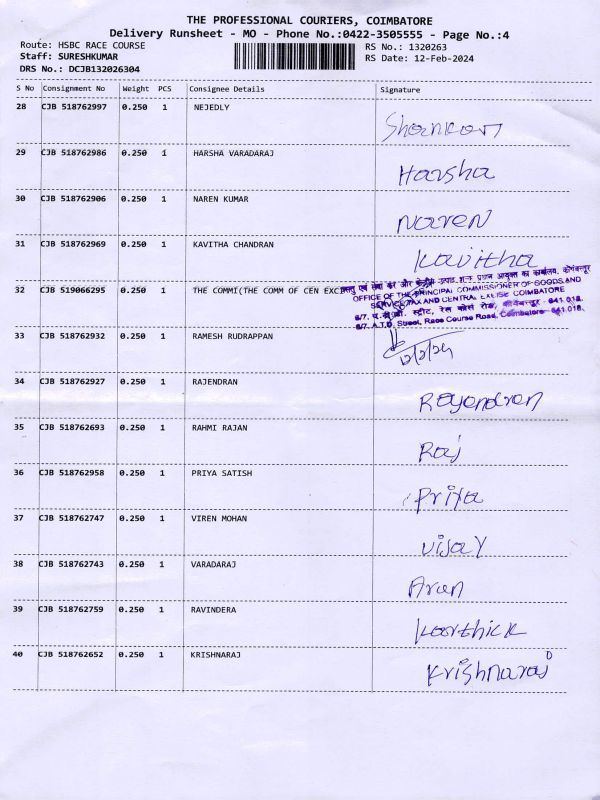 THE PROFESSIONAL COURIERS, COIMBATORE
Delivery Runsheet - MO - Phone No.:0422-3505555 - Page No.:4
Route: HSBC RACE COURSE RS No.: 1320263
Staff: SURESHKUMAR RS Date: 12-Feb-2024
DRS No.: DCJB132026304
S No Consignment No Weight PCS Consignee Details Signature
28 CJB 518762997 0.250 1 NEJEDLY
29 CJB 518762986 0.250 1 HARSHA VARADARAJ
Harsha
30 CJB 518762906 0.250 1 NAREN KUMAR
Naren
31 CJB 518762969 0.250 1 KAVITHA CHANDRAN
Kavitha
32 CJB 519066295 0.250 1 THE COMMI(THE COMM OF CEN EXCI
वस्तु एवं सेवा कर और केन्द्रीय उत्पाद शुल्क प्रधान आयुक्त का कार्यालय, कोयंबत्तूर
OFFICE OF THE PRINCIPAL COMMISSIONER OF GOODS AND
SERVICE TAX AND CENTRAL EXCISE COIMBATORE
6/7, ए.टी.डी. स्ट्रीट, रेस कोर्स रोड, कोयंबत्तूर - 641 018.
6/7, A.T.D. Street, Race Course Road, Coimbatore - 641 018.
33 CJB 518762932 0.250 1 RAMESH RUDRAPPAN
12/2/24
34 CJB 518762927 0.250 1 RAJENDRAN
Rayendren
35 CJB 518762693 0.250 1 RAHMI RAJAN
Raj
36 CJB 518762958 0.250 1 PRIYA SATISH
Priya
37 CJB 518762747 0.250 1 VIREN MOHAN
Vijay
38 CJB 518762743 0.250 1 VARADARAJ
Arun
39 CJB 518762759 0.250 1 RAVINDERA
Karthick
40 CJB 518762652 0.250 1 KRISHNARAJ
Krishnaraj